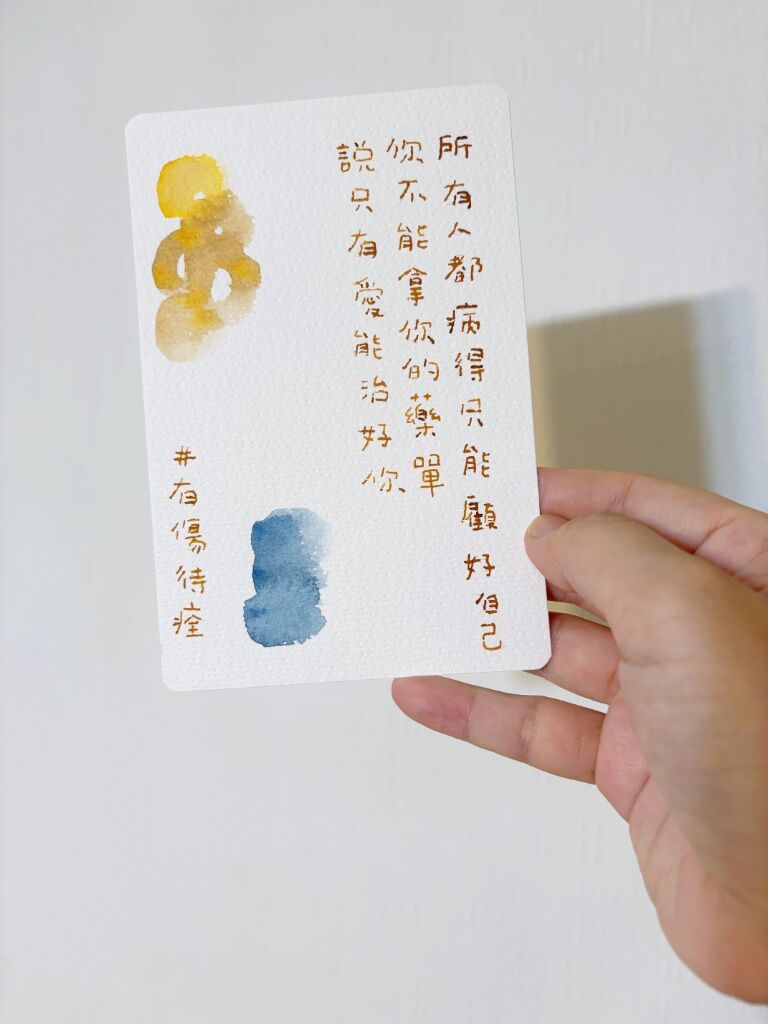 所有人都病得只能顧好自己
你不能拿你的藥單
說只有愛能治好你
#有傷待痊